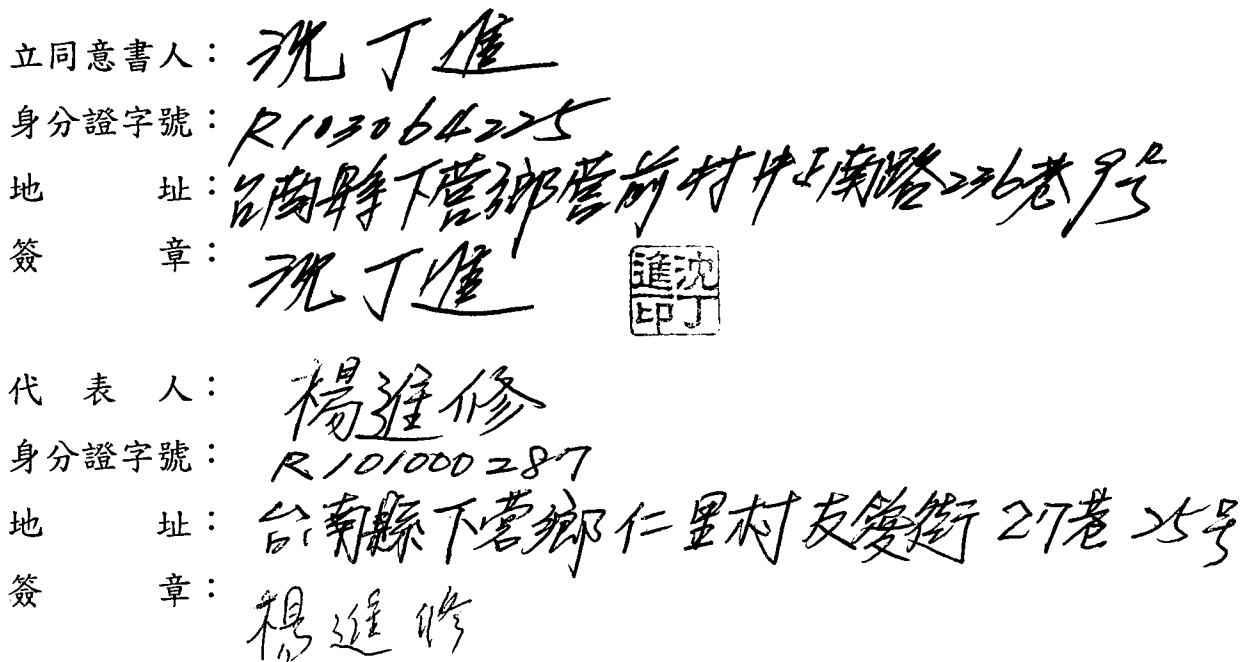 立同意書人：沈丁進
身分證字號：R103064225
地址：台南縣下營鄉營前村中正南路236巷9号
簽章：沈丁進 沈丁進印
代表人：楊進修
身分證字號：R101000287
地址：台南縣下營鄉仁里村友愛街27巷25号
簽章：楊進修